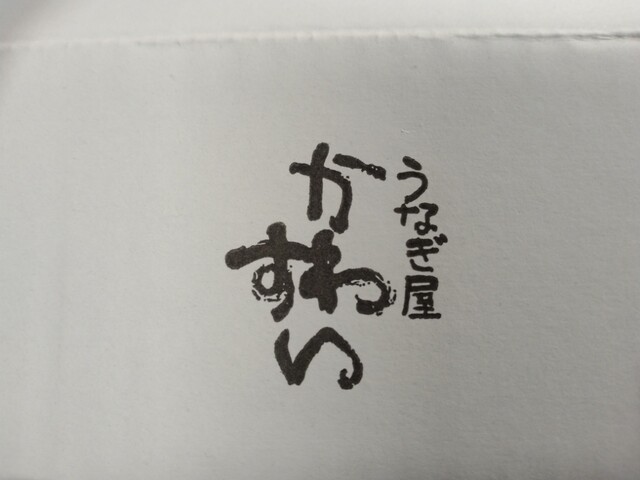 うなぎ屋
かわすい